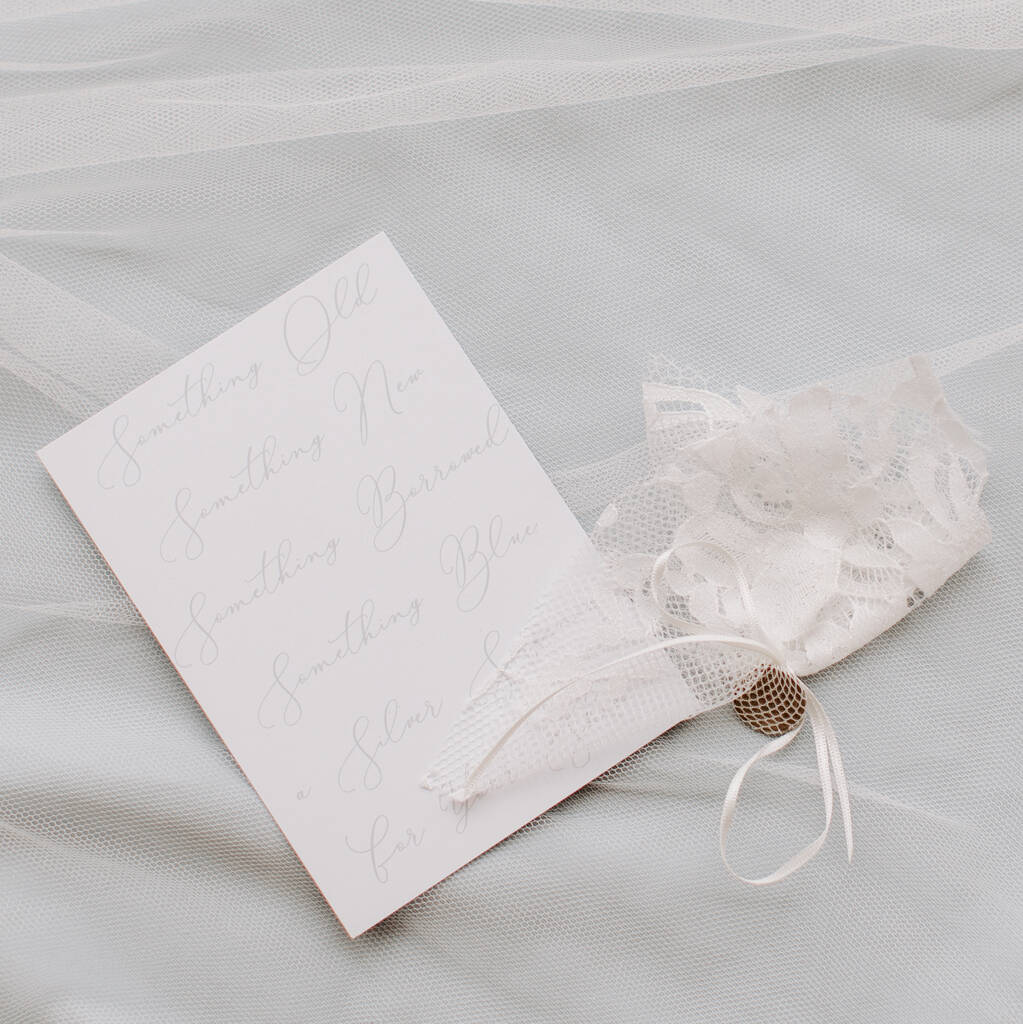 Something Old
Something New
Something Borrowed
Something Blue
a Silver
for